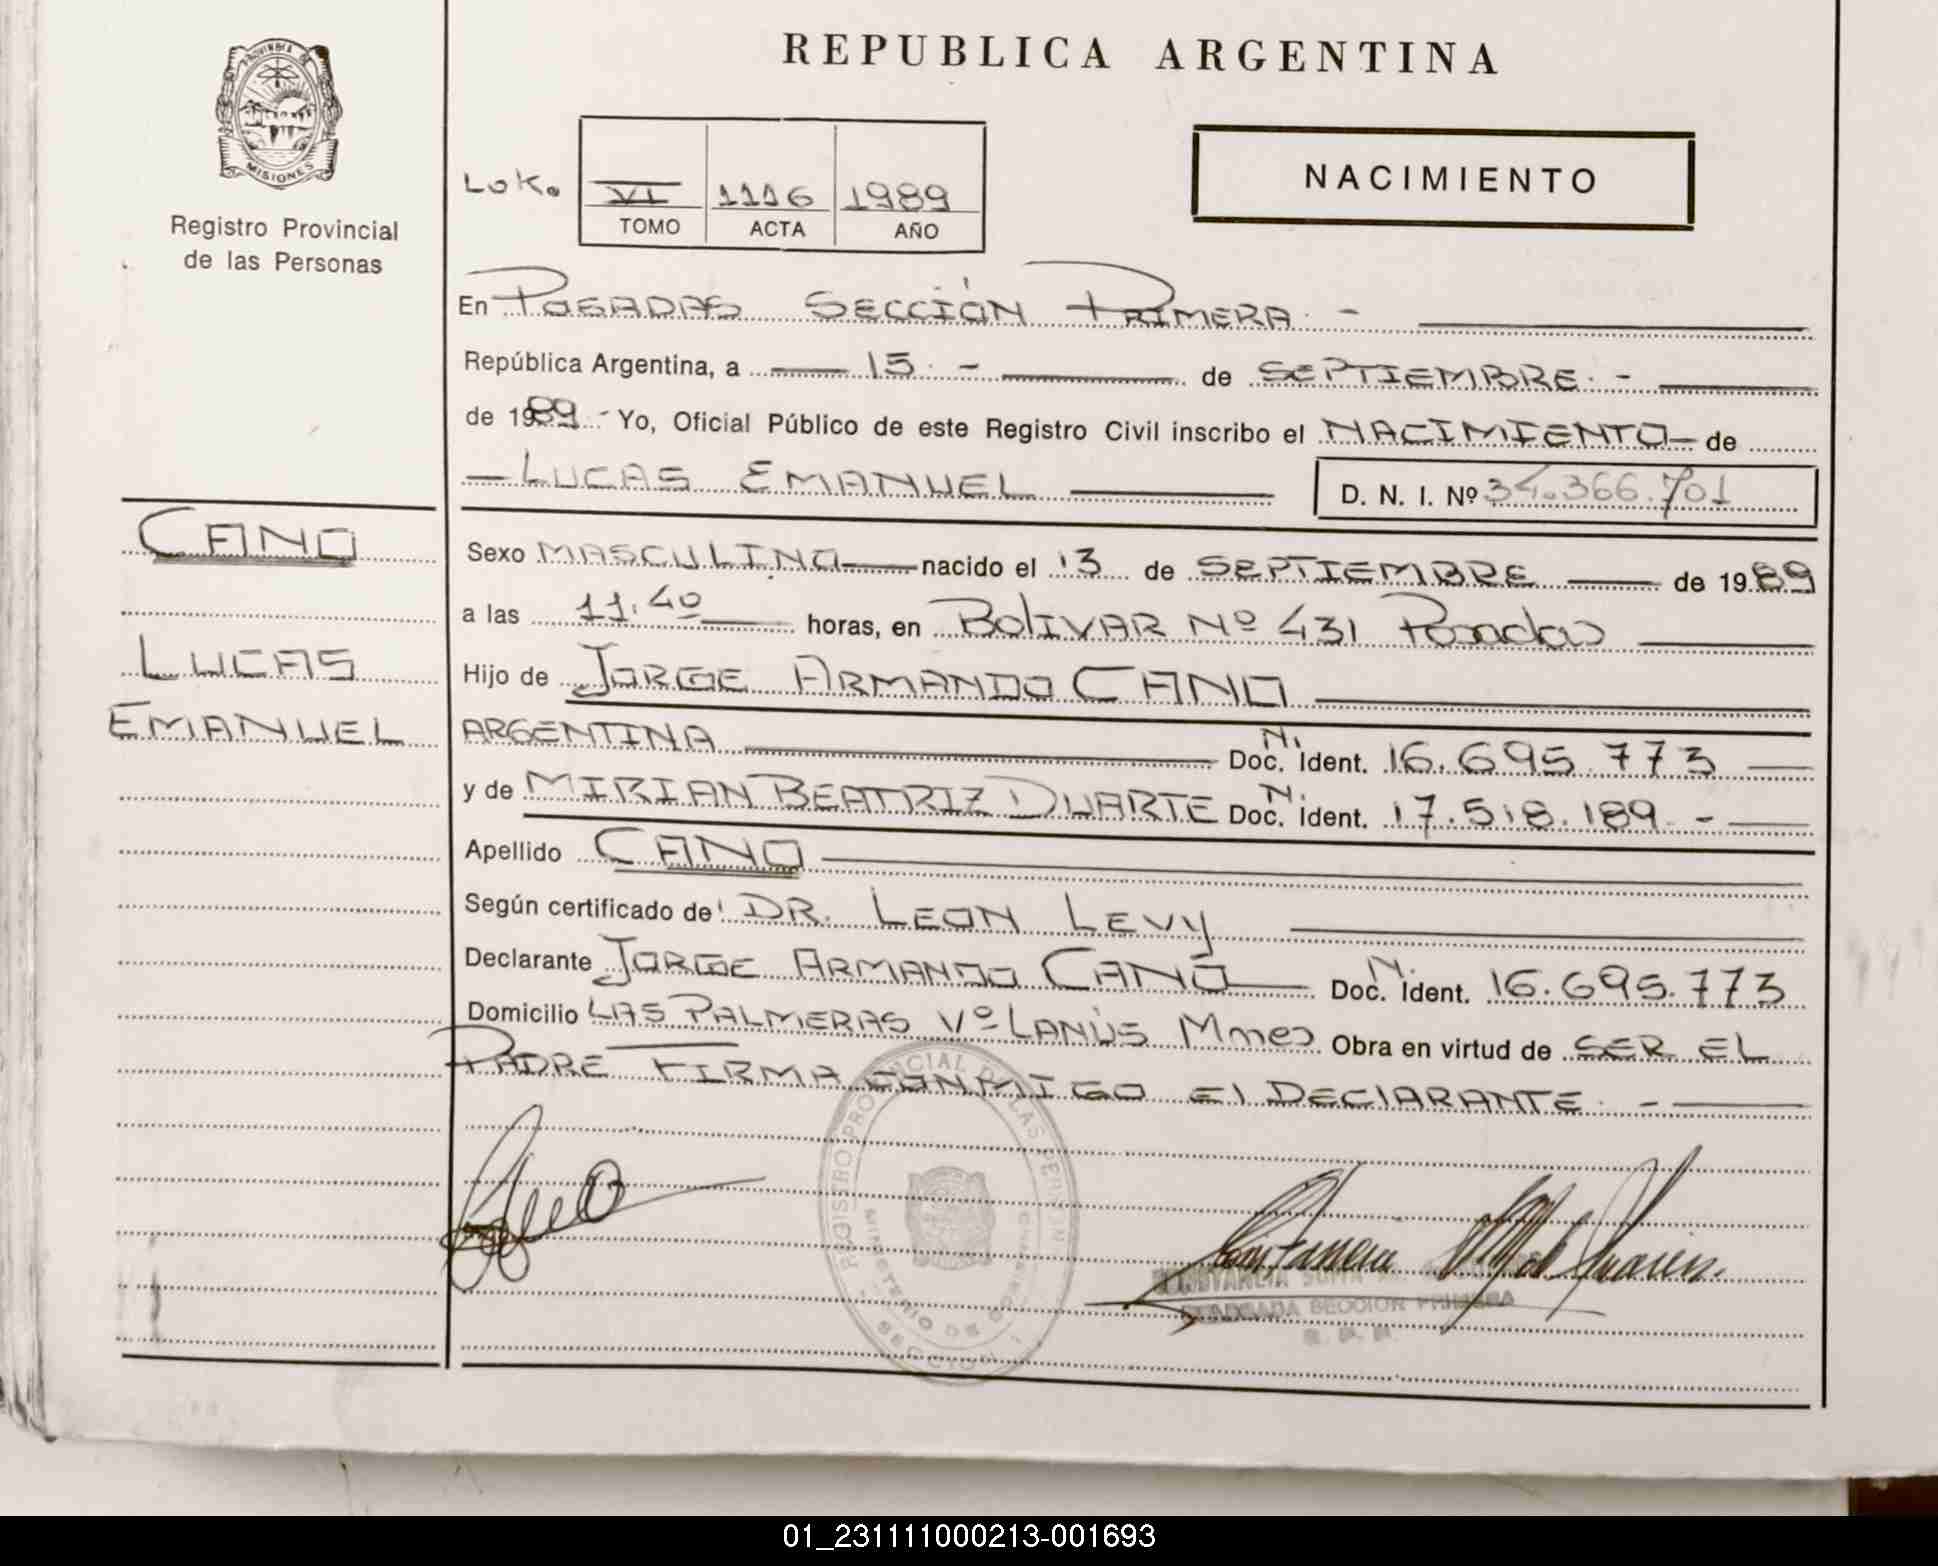 REPUBLICA ARGENTINA
PROVINCIA
MISIONES
Registro Provincial
de las Personas
LOK.
VI 1116 1989
TOMO ACTA AÑO
NACIMIENTO
En POSADAS SECCIÓN PRIMERA. -
República Argentina, a 15. - de SEPTIEMBRE. -
de 1989.- Yo, Oficial Público de este Registro Civil inscribo el NACIMIENTO de
LUCAS EMANUEL
D. N. I. Nº 34.366.701
CANO
LUCAS
EMANUEL
Sexo MASCULINO nacido el 13 de SEPTIEMBRE de 1989
a las 11.40 horas, en BOLIVAR Nº 431 Posadas
Hijo de JORGE ARMANDO CANO
ARGENTINA N. Doc. Ident. 16.695.773
y de MIRIAN BEATRIZ DUARTE N. Doc. Ident. 17.518.189. -
Apellido CANO
Según certificado de DR. LEON LEVY
Declarante JORGE ARMANDO CANO N. Doc. Ident. 16.695.773
Domicilio LAS PALMERAS Vº LANÚS Mnes Obra en virtud de SER EL
PADRE FIRMA CONMIGO El DEClARANTE. -
REGISTRO PROVINCIAL DE LAS PERSONAS
MINISTERIO DE GOBIERNO
SECCION 1
CONSTANCIA
SECCION PRIMERA
01_231111000213-001693